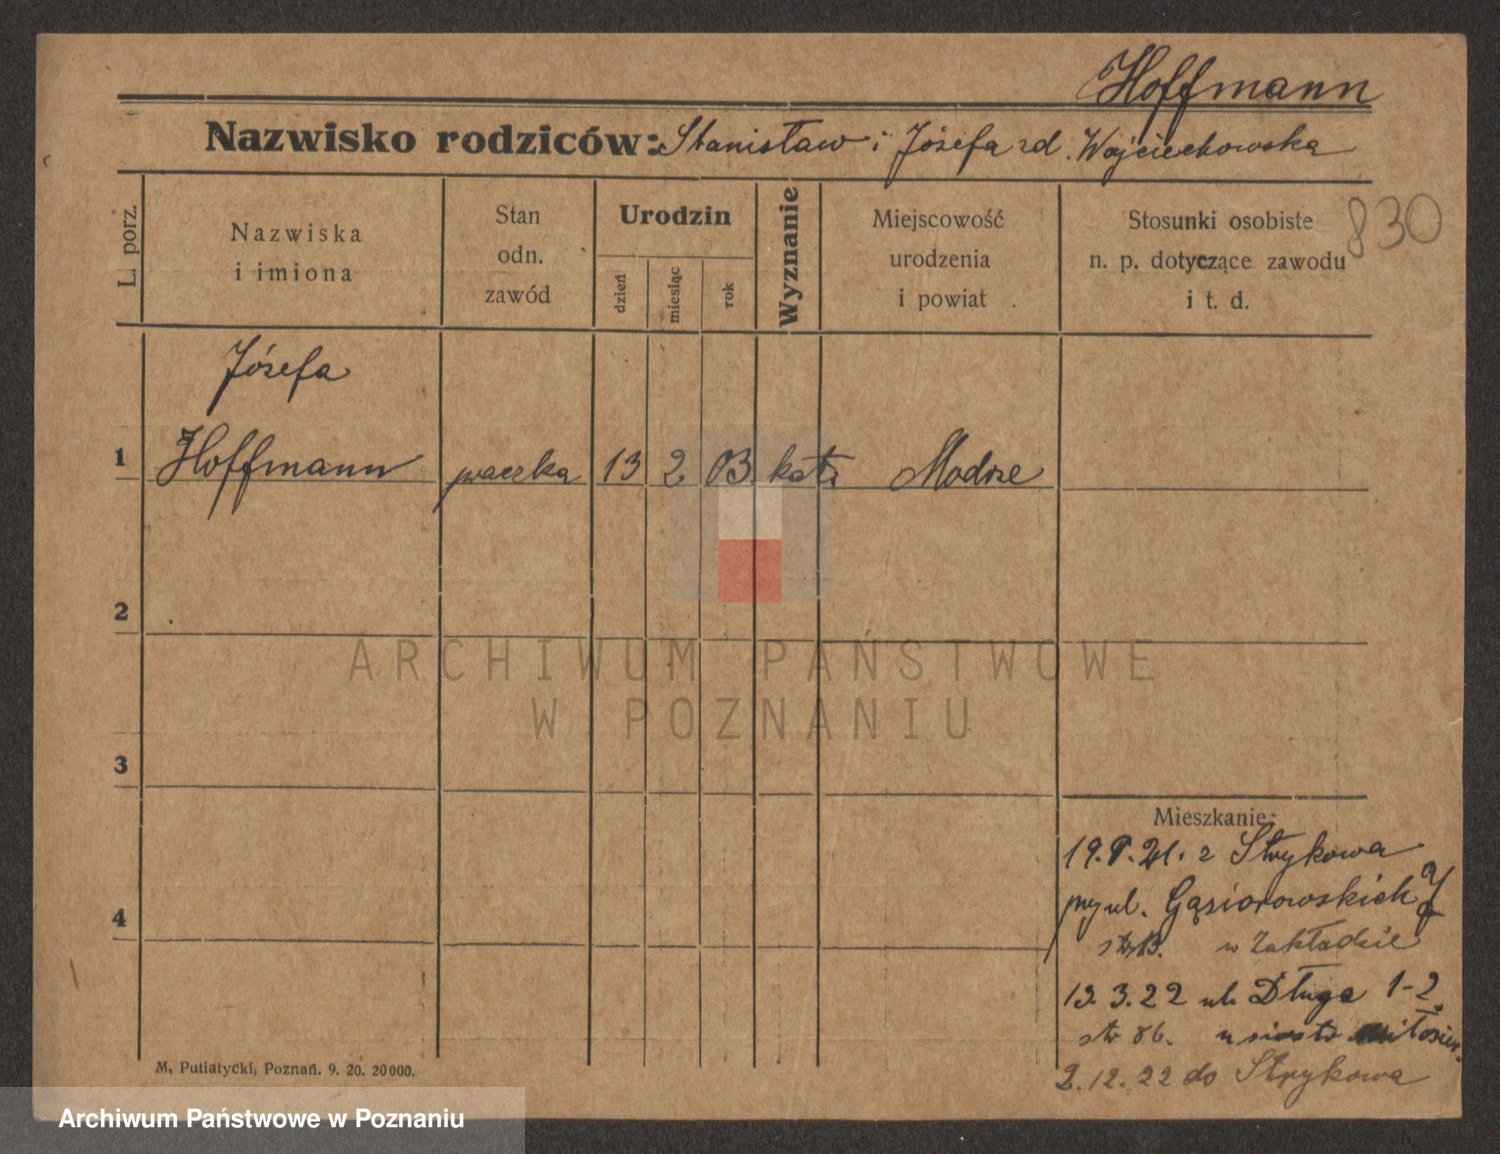 Hoffmann
Nazwisko rodziców: Stanisław i Józefa zd. Wojciechowska
830
L. porz.
Nazwiska
i imiona
Stan
odn.
zawód
Urodzin
dzień
miesiąc
rok
Wyznanie
Miejscowość
urodzenia
i powiat
Stosunki osobiste
n. p. dotyczące zawodu
i t. d.
Józefa
1 Hoffmann praczka 13 2 03 kat. Modrze
2
3
4
ARCHIWUM PAŃSTWOWE
W POZNANIU
Mieszkanie:
21. z Strykowa
przy ul. Gąsiorowskich 7
str 13. w Zakładzie
19. 3. 22 ul. Długa 1-2
str 86. u sióstr miłosier.
2. 12. 22 do Strykowa
M. Putiatycki, Poznań. 9. 20. 20000.
Archiwum Państwowe w Poznaniu